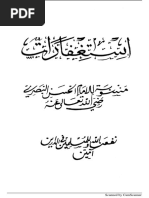 استغفارات
منسوبة للامام الحسن البصري
رضي الله تعالى عنه
نفعنا الله والمسلمين به
آمين
Scanned by CamScanner